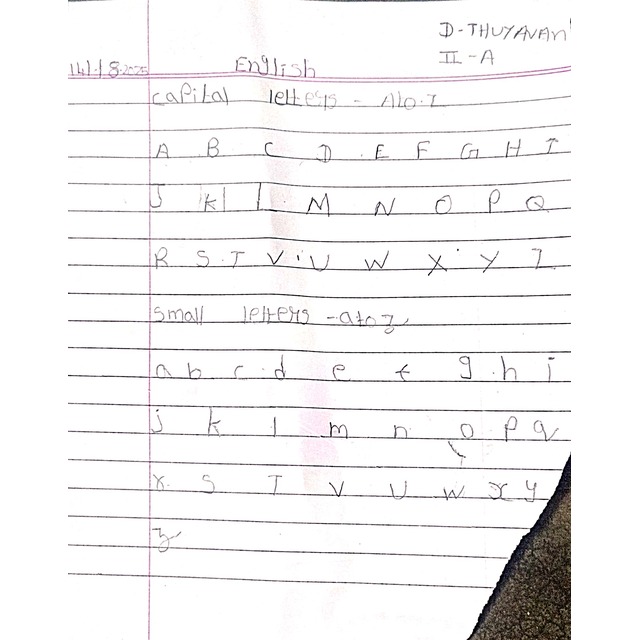 D-THUYAVAN
II-A
14/8/2025 English
capital letters - A to Z
A B C D E F G H I
J K l M N O P Q
R S T V U W X Y Z
small letters - a to z
a b c d e f g h i
j k l m n o p q
r S T V U W x y
z